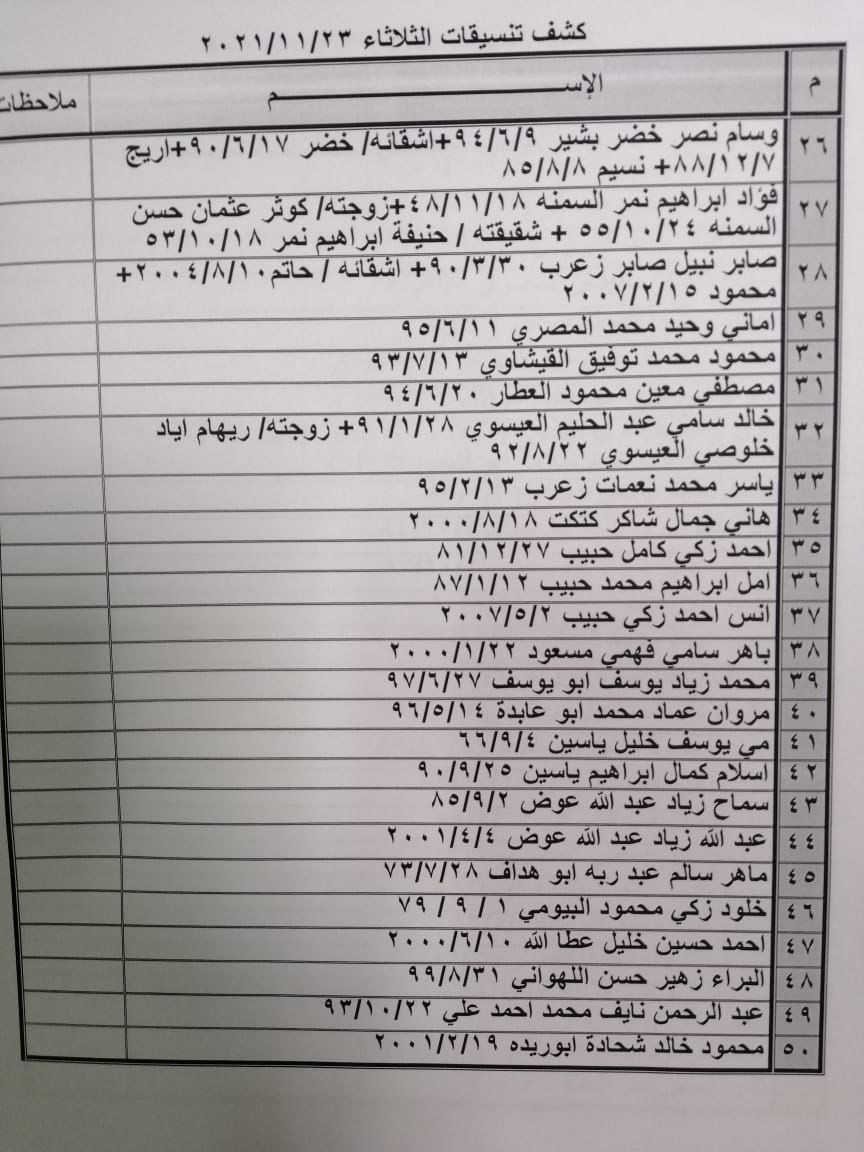 كشف تنسيقات الثلاثاء ٢٠٢١/١١/٢٣
م الإســـــــم ملاحظات
٢٦ وسام نصر خضر بشير ٩٤/٦/٩+اشقائه/ خضر ٩٠/٦/١٧+اريج
٨٨/١٢/٧+ نسيم ٨٥/٨/٨
٢٧ فؤاد ابراهيم نمر السمنه ٤٨/١١/١٨+زوجته/ كوثر عثمان حسن
السمنه ٥٥/١٠/٢٤ + شقيقته / حنيفة ابراهيم نمر ٥٣/١٠/١٨
٢٨ صابر نبيل صابر زعرب ٩٠/٣/٣٠+ اشقائه / حاتم٢٠٠٤/٨/١٠+
محمود ٢٠٠٧/٢/١٥
٢٩ اماني وحيد محمد المصري ٩٥/٦/١١
٣٠ محمود محمد توفيق القيشاوي ٩٣/٧/١٣
٣١ مصطفي معين محمود العطار ٩٤/٦/٢٠
٣٢ خالد سامي عبد الحليم العيسوي ٩١/١/٢٨+ زوجته/ ريهام اياد
خلوصي العيسوي ٩٢/٨/٢٢
٣٣ ياسر محمد نعمات زعرب ٩٥/٢/١٣
٣٤ هاني جمال شاكر كتكت ٢٠٠٠/٨/١٨
٣٥ احمد زكي كامل حبيب ٨١/١٢/٢٧
٣٦ امل ابراهيم محمد حبيب ٨٧/١/١٢
٣٧ انس احمد زكي حبيب ٢٠٠٧/٥/٢
٣٨ باهر سامي فهمي مسعود ٢٠٠٠/١/٢٢
٣٩ محمد زياد يوسف ابو يوسف ٩٧/٦/٢٧
٤٠ مروان عماد محمد ابو عابدة ٩٦/٥/١٤
٤١ مي يوسف خليل ياسين ٦٦/٩/٤
٤٢ اسلام كمال ابراهيم ياسين ٩٠/٩/٢٥
٤٣ سماح زياد عبد الله عوض ٨٥/٩/٢
٤٤ عبد الله زياد عبد الله عوض ٢٠٠١/٤/٤
٤٥ ماهر سالم عبد ربه ابو هداف ٧٣/٧/٢٨
٤٦ خلود زكي محمود البيومي ١ / ٩ / ٧٩
٤٧ احمد حسين خليل عطا الله ٢٠٠٠/٦/١٠
٤٨ البراء زهير حسن اللهواني ٩٩/٨/٣١
٤٩ عبد الرحمن نايف محمد احمد علي ٩٣/١٠/٢٢
٥٠ محمود خالد شحادة ابوريده ٢٠٠١/٢/١٩